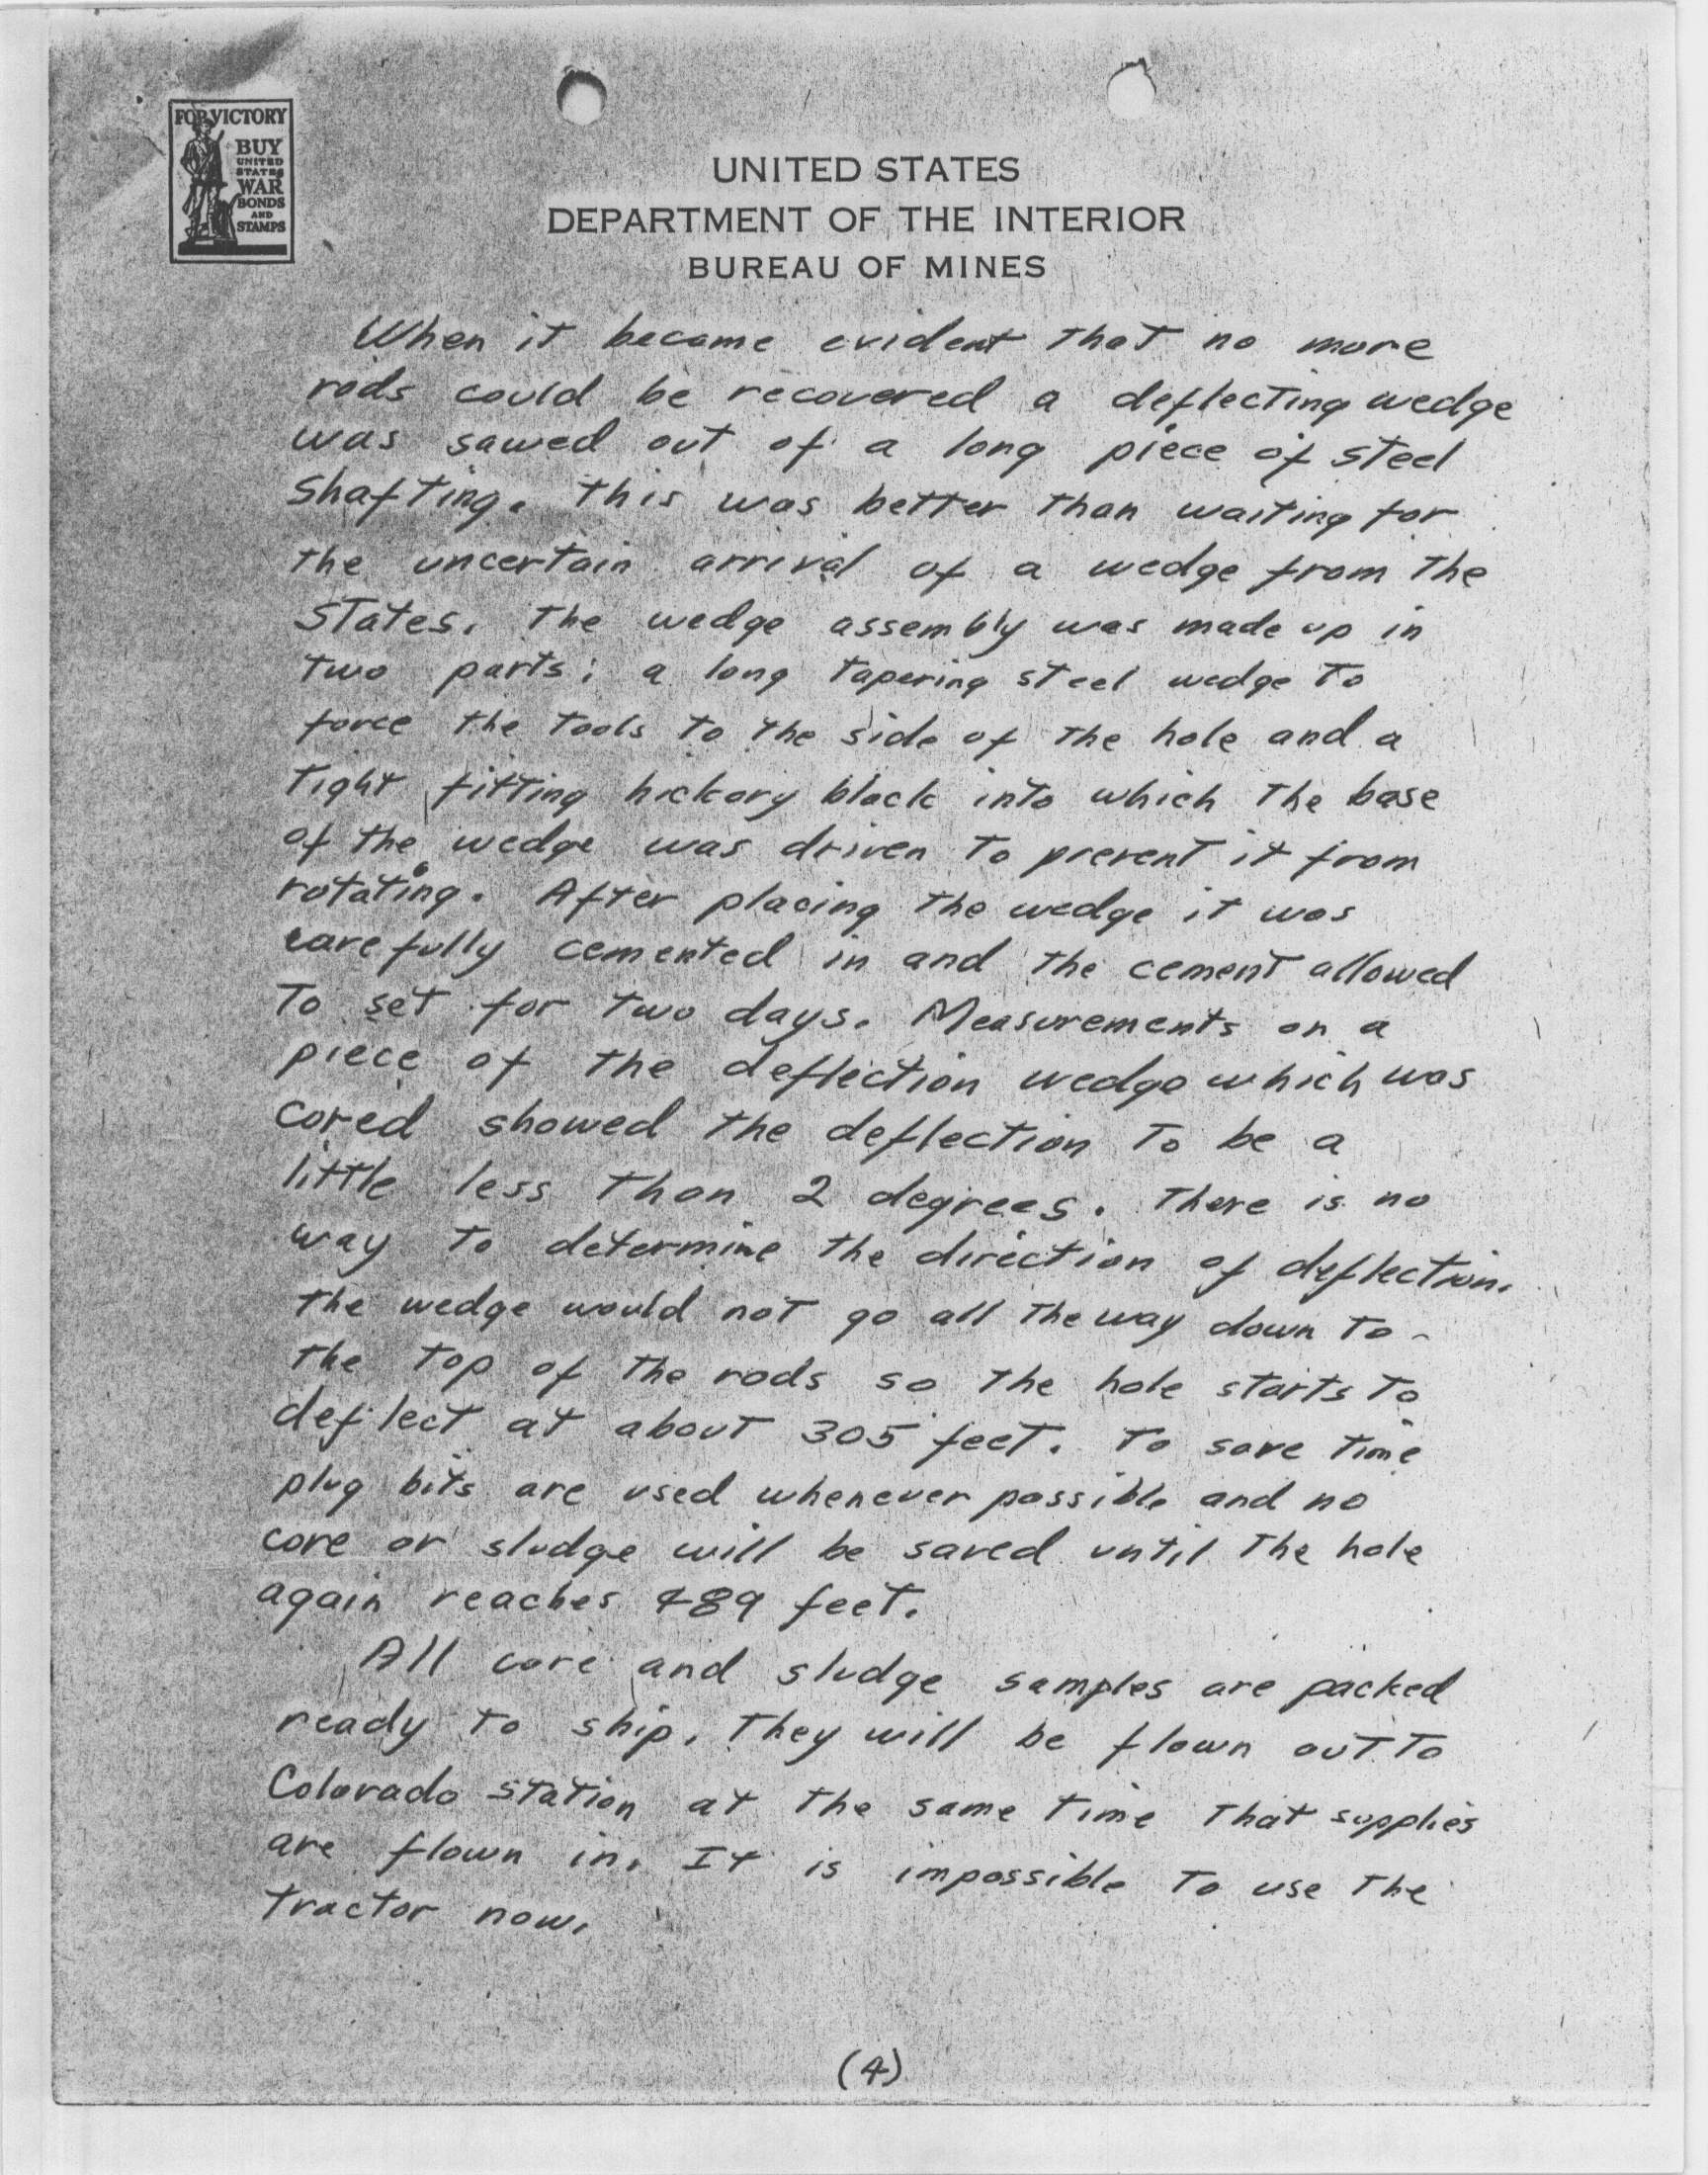 FOR VICTORY
BUY
UNITED
STATES
WAR
BONDS
AND
STAMPS
UNITED STATES
DEPARTMENT OF THE INTERIOR
BUREAU OF MINES
When it became evident that no more
rods could be recovered a deflecting wedge
was sawed out of a long piece of steel
shafting. This was better than waiting for
the uncertain arrival of a wedge from the
States. The wedge assembly was made up in
two parts; a long tapering steel wedge to
force the tools to the side of the hole and a
tight fitting hickory block into which the base
of the wedge was driven to prevent it from
rotating. After placing the wedge it was
carefully cemented in and the cement allowed
to set for two days. Measurements on a
piece of the deflection wedge which was
cored showed the deflection to be a
little less than 2 degrees. There is no
way to determine the direction of deflection.
The wedge would not go all the way down to
the top of the rods so the hole starts to
deflect at about 305 feet. To save time
plug bits are used whenever possible and no
core or sludge will be saved until the hole
again reaches 489 feet.
All core and sludge samples are packed
ready to ship. They will be flown out to
Colorado station at the same time that supplies
are flown in. It is impossible to use the
tractor now.
(4)